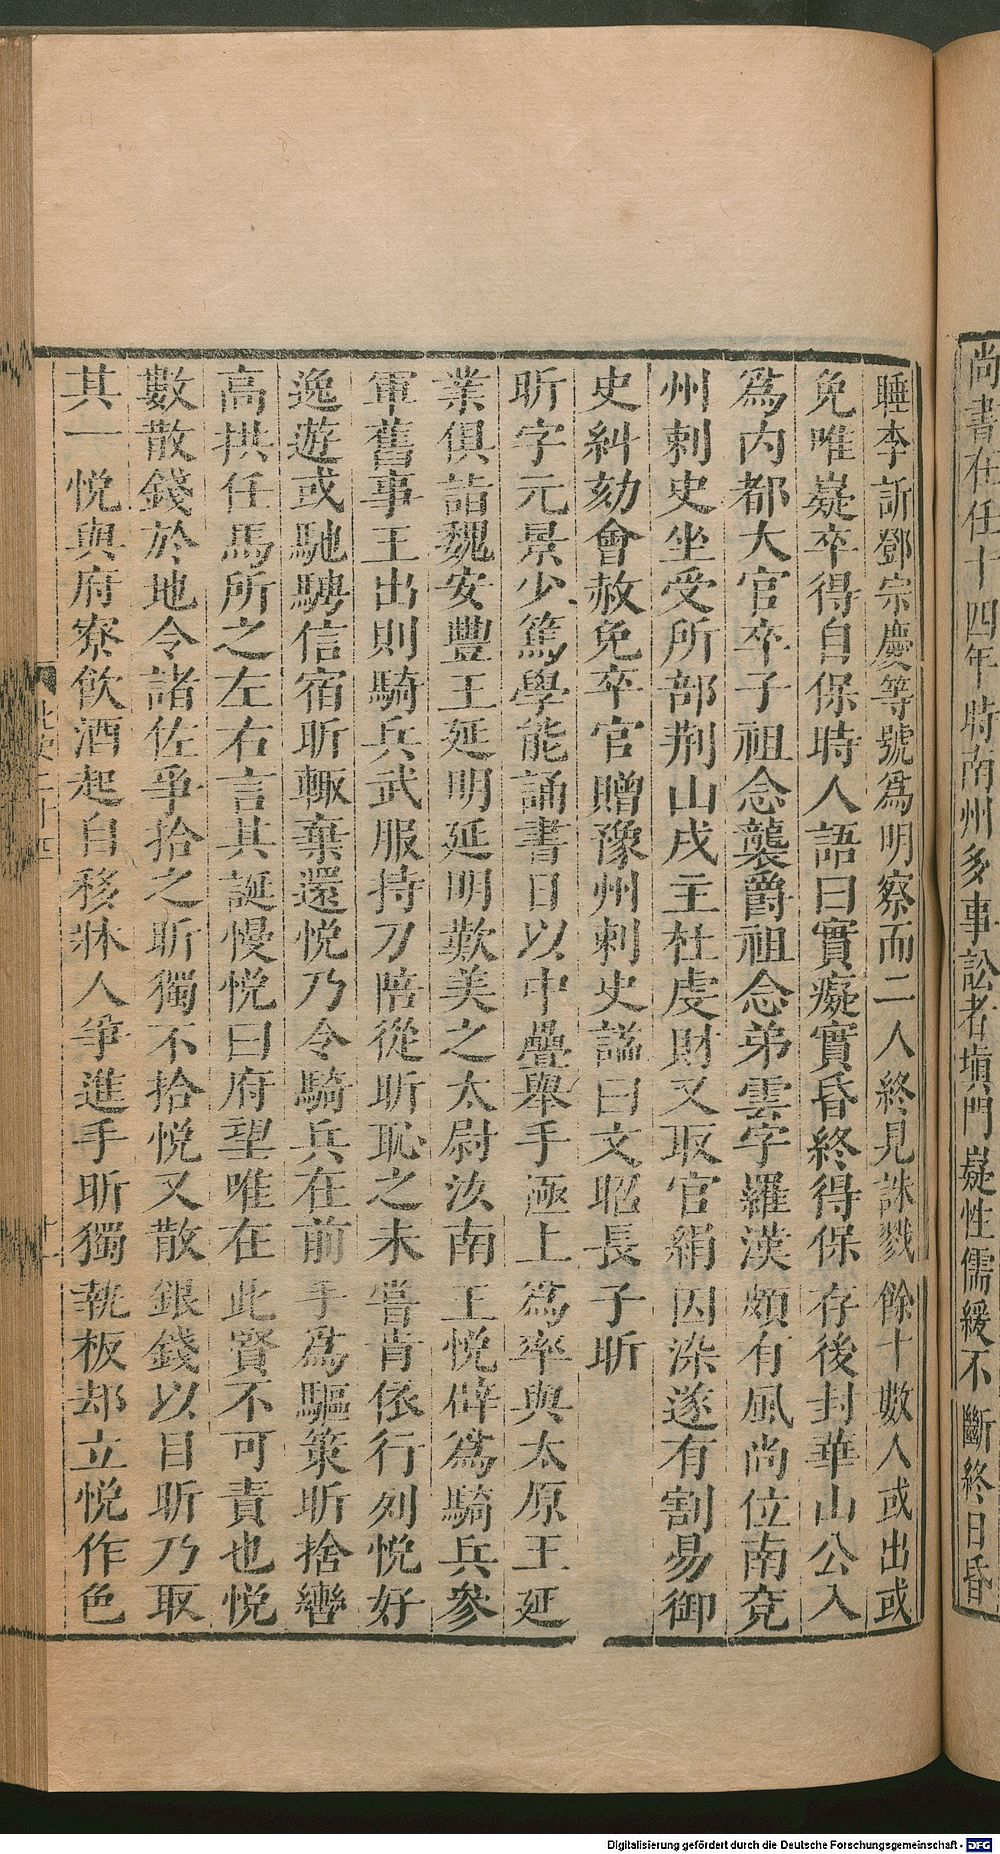 尚書在任十四年時南州多事訟者塡門嶷性儒緩不斷終日昏
睡李訢鄧宗慶等號爲明察而二人終見誅戮餘十數人或出或
免唯嶷卒得自保時人語曰實癡實昏終得保存後封華山公入
爲內都大官卒子祖念襲爵祖念弟雲字羅漢頗有風尚位南兗
州刺史坐受所部荆山戍主杜虔財又取官絹因染遂有割易御
史糾劾會赦免卒官贈豫州刺史謚曰文昭長子昕
昕字元景少篤學能誦書日以中疊舉手極上爲率與太原王延
業俱詣魏安豐王延明延明歎美之太尉汝南王悅辟爲騎兵參
軍舊事王出則騎兵武服持刀陪從昕恥之未嘗肯依行列悅好
逸遊或馳騁信宿昕輒棄還悅乃令騎兵在前手爲驅策昕捨轡
高拱任馬所之左右言其誕慢悅曰府望唯在此賢不可責也悅
數散錢於地令諸佐爭拾之昕獨不拾悅又散銀錢以目昕乃取
其一悅與府寮飲酒起自移牀人爭進手昕獨執板却立悅作色
Digitalisierung gefördert durch die Deutsche Forschungsgemeinschaft - DFG